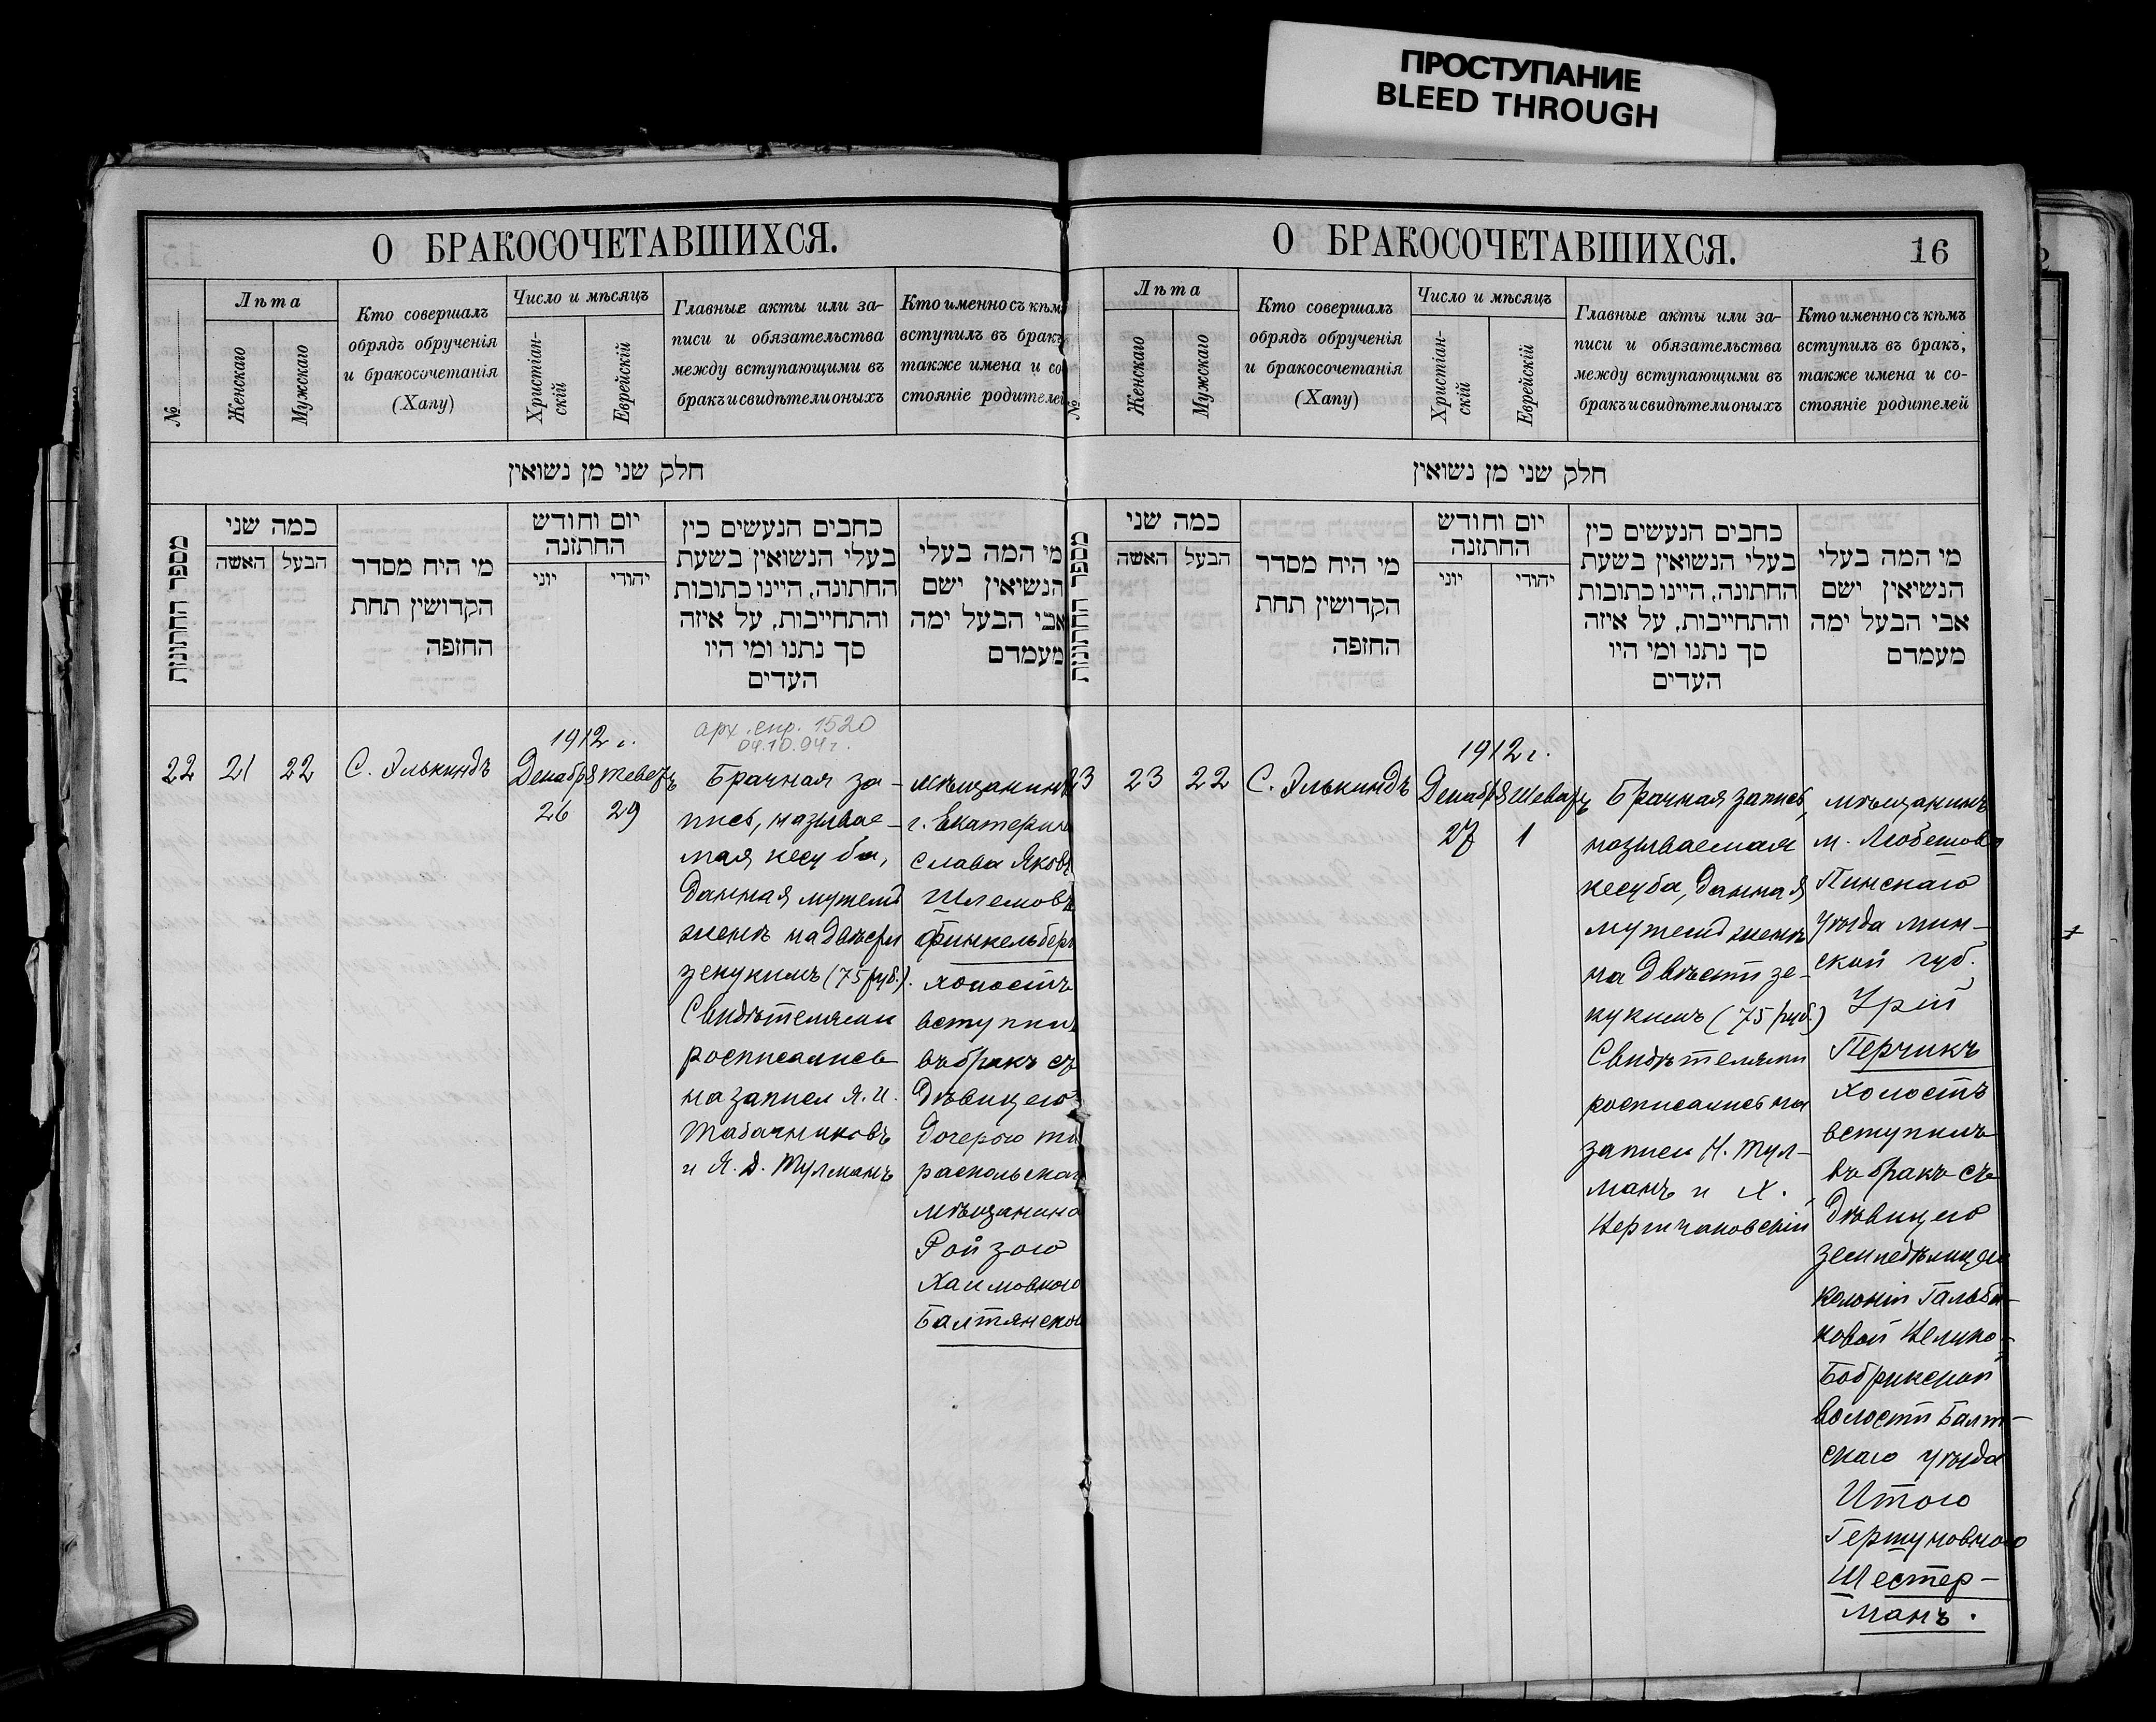 ПРОСТУПАНИЕ
BLEED THROUGH
О БРАКОСОЧЕТАВШИХСЯ.
№
Лѣта
Женскаго
Мужскаго
Кто совершалъ
обрядъ обрученія
и бракосочетанія
(Хапу)
Число и мѣсяцъ
Христіан-
скій
Еврейскій
Главные акты или за-
писи и обязательства
между вступающими въ
бракъ и свидѣтели оныхъ
Кто именно съ кѣмъ
вступилъ въ бракъ
также имена и со
стояніе родителей
חלק שני מן נשואין
מספר החתונות
כמה שני
האשה
הבעל
מי היח מסדר
הקדושין תחת
החזפה
יום וחודש
החתזנה
יוני
יהודי
כחבים הנעשים כין
בעלי הנשואין בשעת
החתונה, היינו כתובות
והתחייבות, על איזה
סך נתנו ומי היו
העדים
מי המה בעלי
הנשיאין ישם
אבי הבעל ימה
מעמדם
22
21
22
С. Элькиндъ
1912 г.
Декабря
26
Теветъ
29
арх. спр. 1520
04.10.94г.
Брачная за-
пись, называе-
мая кесуба,
данная мужемъ
женѣ на двѣсти
зекукимъ (75 руб.).
Свидѣтелями
росписались
на записи Я. И.
Табачниковъ
и Я. Д. Тулманъ
мѣщанинъ
г. Екатерино
слава Яковъ
Шлемовъ
Финкельберг
холостъ
вступил
въ бракъ съ
дѣвицею
дочерою ти
распольскаг
мѣщанина
Ройзою
Хаимовною
Балтянской
О БРАКОСОЧЕТАВШИХСЯ.
16
№
Лѣта
Женскаго
Мужскаго
Кто совершалъ
обрядъ обрученія
и бракосочетанія
(Хапу)
Число и мѣсяцъ
Христіан-
скій
Еврейскій
Главные акты или за-
писи и обязательства
между вступающими въ
бракъ и свидѣтели оныхъ
Кто именно съ кѣмъ
вступилъ въ бракъ,
также имена и со-
стояніе родителей
חלק שני מן נשואין
מספר החתונות
כמה שני
האשה
הבעל
מי היח מסדר
הקדושין תחת
החזפה
יום וחודש
החתזנה
יוני
יהודי
כחבים הנעשים כין
בעלי הנשואין בשעת
החתונה, היינו כתובות
והתחייבות, על איזה
סך נתנו ומי היו
העדים
מי המה בעלי
הנשיאין ישם
אבי הבעל ימה
מעמדם
23
23
22
С. Элькиндъ
1912 г.
Декабря
27
Шеватъ
1
Брачная запись,
называемая
кесуба, данная
мужемъ женѣ
на двѣсти зе-
кукимъ (75 руб.)
Свидѣтелями
росписались на
записи Н. Тул-
манъ и Х.
мѣщанинъ
м. Любешова
Пинскаго
уѣзда Мин-
ской губ.
Урій
Перчикъ
холостъ
вступилъ
въ бракъ съ
дѣвицею
колоніи
волости Балт-
скаго уѣзда
Итою
Шестер-
манъ.